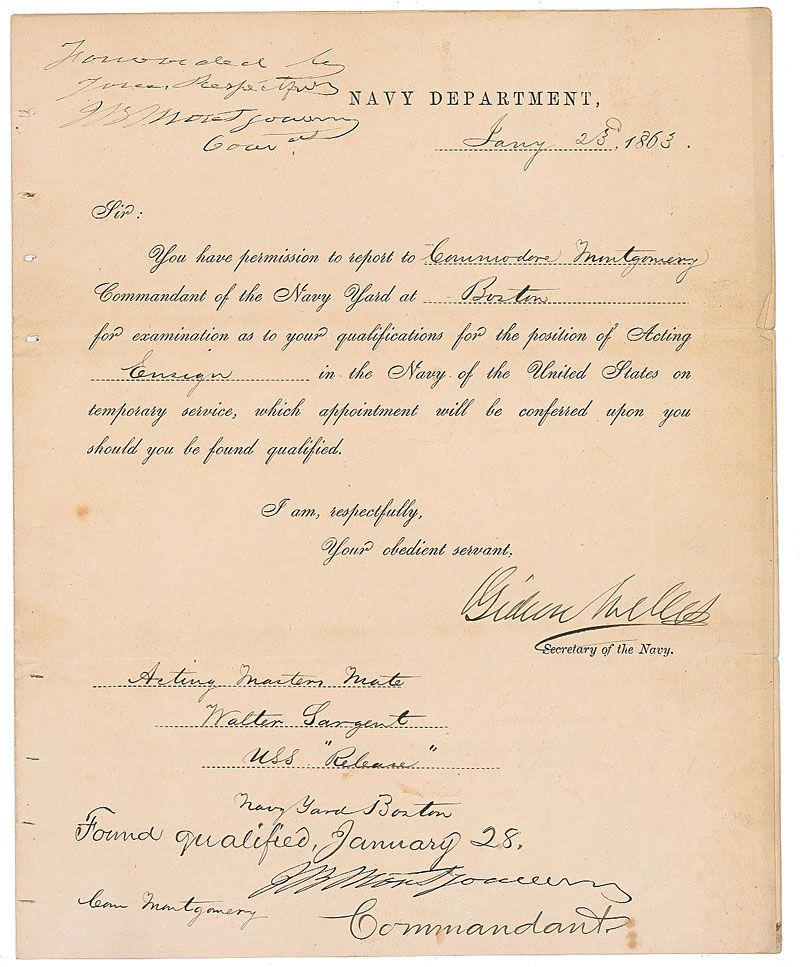 Forwarded by
Yours Respectfully
JB Montgomery
Comdt.
NAVY DEPARTMENT,
Jany 23d, 1863.
Sir:
You have permission to report to Commodore Montgomery
Commandant of the Navy Yard at Boston
for examination as to your qualifications for the position of Acting
Ensign in the Navy of the United States on
temporary service, which appointment will be conferred upon you
should you be found qualified.
I am, respectfully,
Your obedient servant,
Gideon Welles
Secretary of the Navy.
Acting Masters Mate
Walter Sargent
USS "Release"
Navy Yard Boston
Found qualified, January 28.
JB Montgomery
Com Montgomery
Commandant